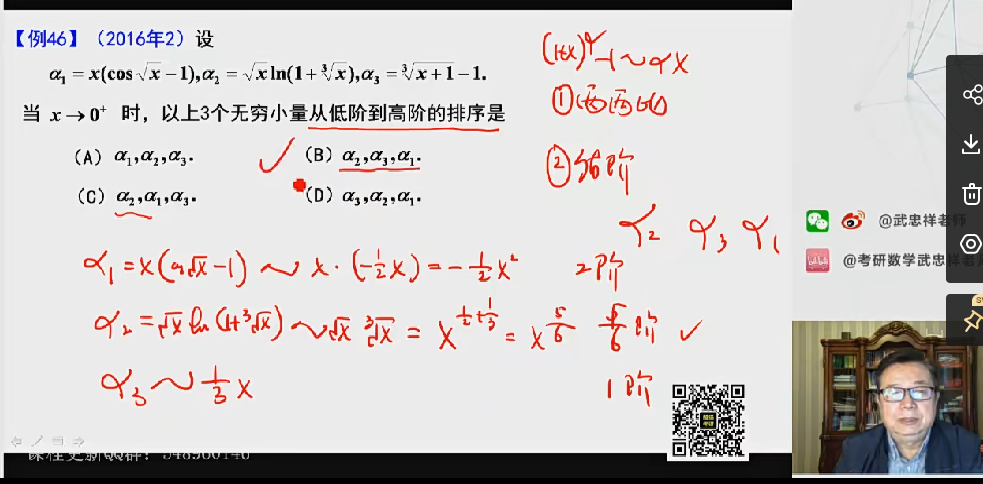 【例46】（2016年2）设
α₁ = x(cos√x − 1), α₂ = √x ln(1 + ∛x), α₃ = ∛(x+1) − 1.
当 x → 0⁺ 时，以上3个无穷小量从低阶到高阶的排序是
(A) α₁, α₂, α₃. (B) α₂, α₃, α₁.
(C) α₂, α₁, α₃. (D) α₃, α₂, α₁.
(1+x)^α − 1 ~ αx
① 两两比
② 阶
α₂ α₃ α₁
α₁ = x(cos√x − 1) ~ x · (−½x) = −½x² 2阶
α₂ = √x ln(1+∛x) ~ √x ∛x = x^(1/2+1/3) = x^(5/6) 5/6阶 ✓
α₃ ~ ⅓x 1阶
@武忠祥老师
@考研数学武忠祥老
课程更新QQ群：348900146